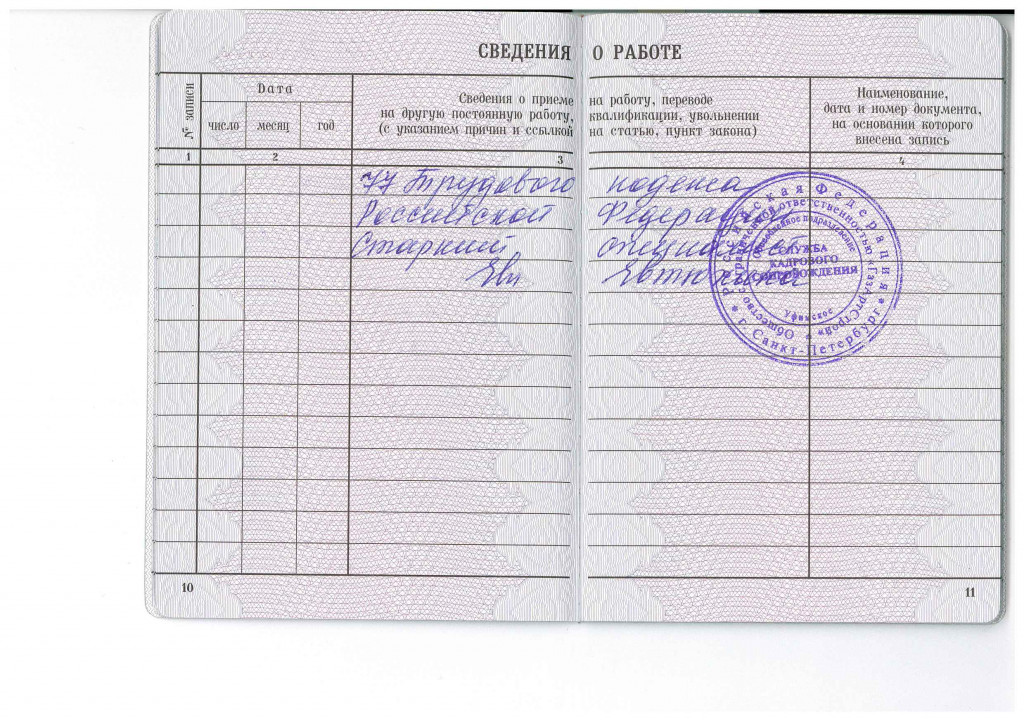 СВЕДЕНИЯ О РАБОТЕ
№ записи
Дата
число
месяц
год
Сведения о приеме на работу, переводе
на другую постоянную работу, квалификации, увольнении
(с указанием причин и ссылкой на статью, пункт закона)
Наименование,
дата и номер документа,
на основании которого
внесена запись
1
2
3
4
77 Трудового кодекса
Российской Федерации
Старший специалист
Евтюхина
Российская Федерация
г. Санкт-Петербург
Общество с ограниченной ответственностью «ГазАртСтрой»
Обособленное подразделение
Уфимское
СЛУЖБА
КАДРОВОГО
СОПРОВОЖДЕНИЯ
10
11